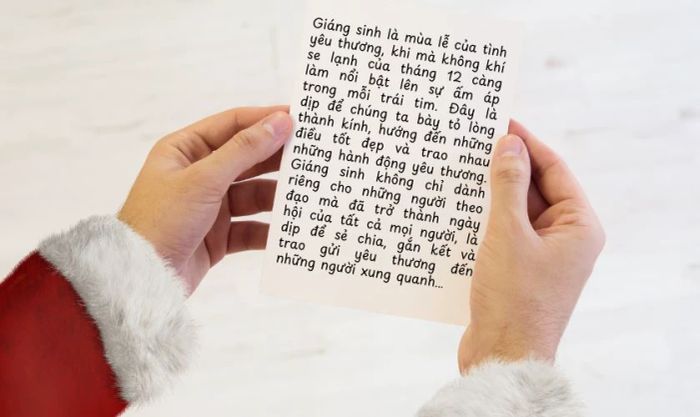 Giáng sinh là mùa lễ của tình
yêu thương, khi mà không khí
se lạnh của tháng 12 càng
làm nổi bật lên sự ấm áp
trong mỗi trái tim. Đây là
dịp để chúng ta bày tỏ lòng
thành kính, hướng đến những
điều tốt đẹp và trao nhau
những hành động yêu thương.
Giáng sinh không chỉ dành
riêng cho những người theo
đạo mà đã trở thành ngày
hội của tất cả mọi người, là
dịp để sẻ chia, gắn kết và
trao gửi yêu thương đến
những người xung quanh...